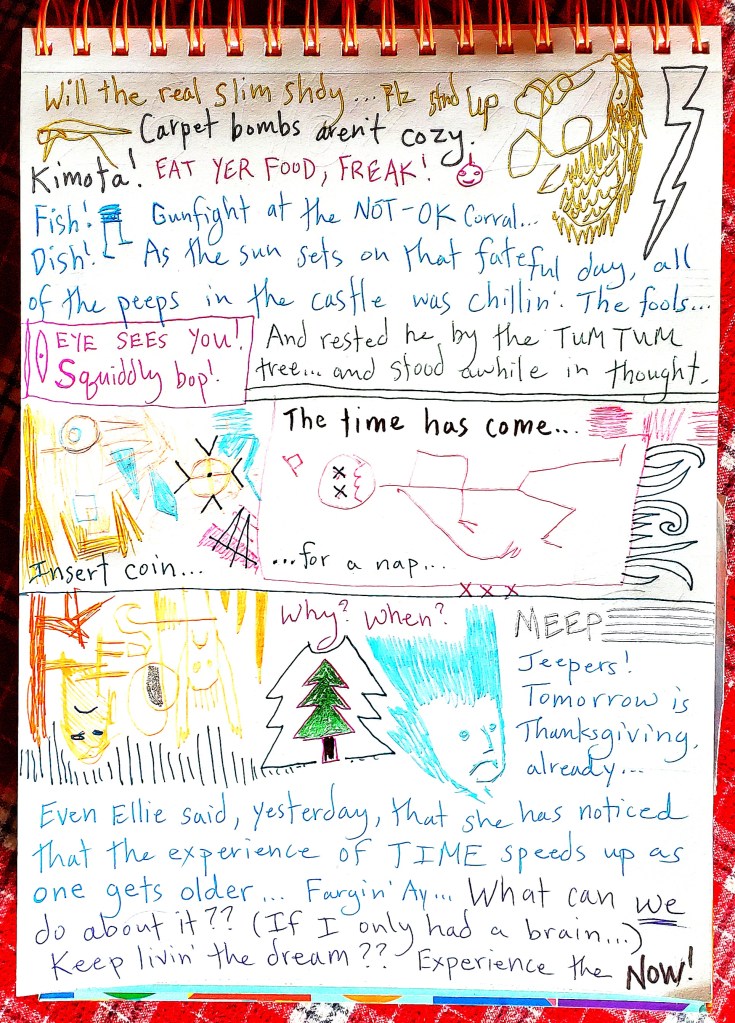 Will the real Slim Shdy... Plz stnd up
Carpet bombs aren't cozy.
Kimota! EAT YER FOOD, FREAK!
Fish! Gunfight at the NOT-OK Corral...
Dish! As the sun sets on that fateful day, all
of the peeps in the castle was chillin'. The fools...
EYE SEES YOU!
Squiddly bop!
And rested he by the TUM TUM
tree... and stood awhile in thought.
The time has come...
Insert coin...
...for a nap...
x x x
Why? When?
MEEP
Jeepers!
Tomorrow is
Thanksgiving,
already...
Even Ellie said, yesterday, that she has noticed
that the experience of TIME speeds up as
one gets older... Fargin' Ay... What can we
do about it?? (If I only had a brain...)
Keep livin' the dream?? Experience the NOW!